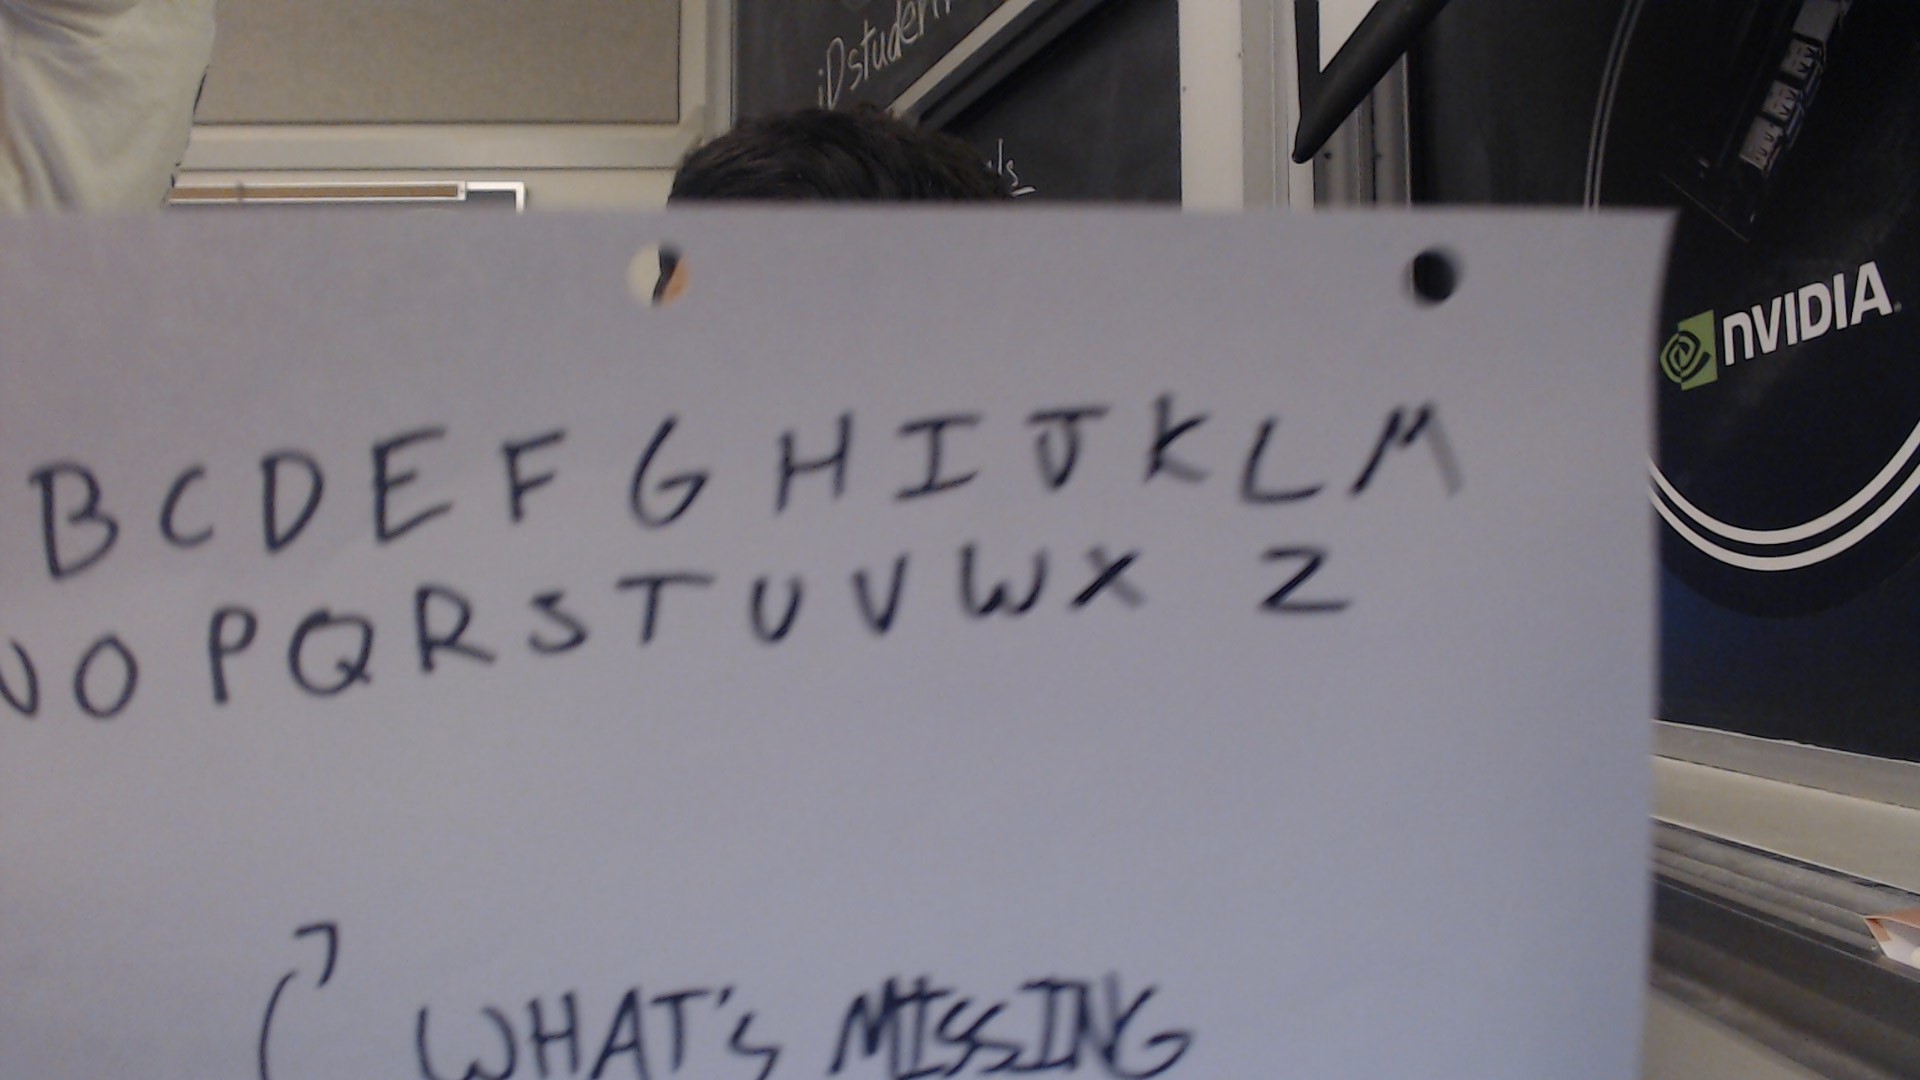 iDstudent
ls
NVIDIA
B C D E F G H I J K L M
N O P Q R S T U V W X Z
WHAT'S MISSING